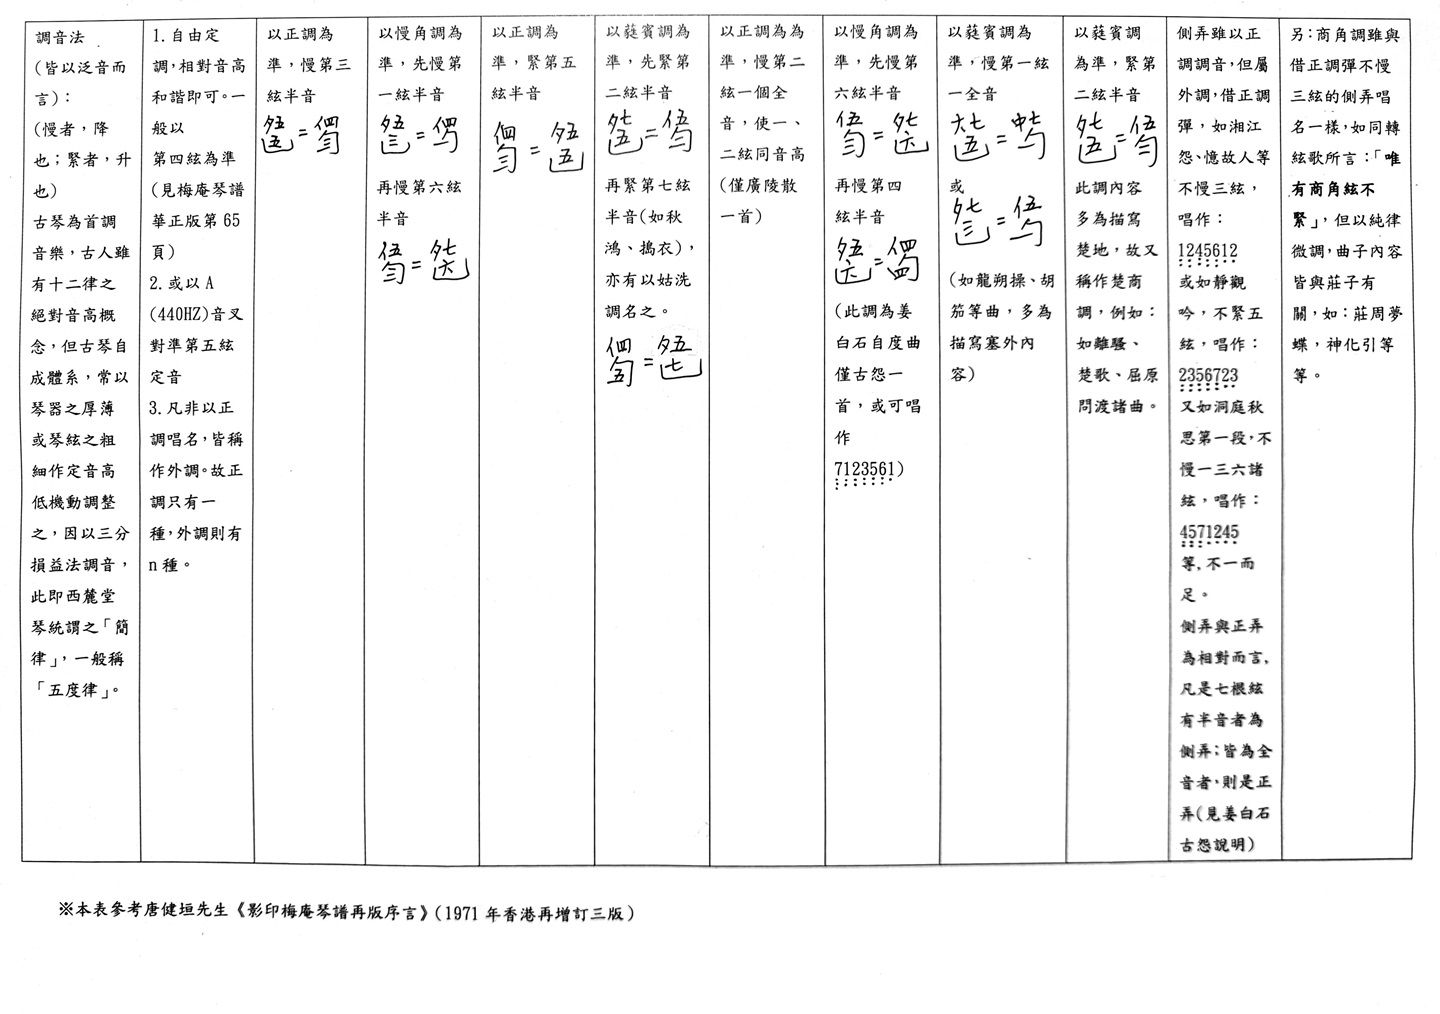 調音法
(皆以泛音而
言)：
(慢者，降
也；緊者，升
也)
古琴為首調
音樂，古人雖
有十二律之
絕對音高概
念，但古琴自
成體系，常以
琴器之厚薄
或琴絃之粗
細作定音高
低機動調整
之，因以三分
損益法調音，
此即西麓堂
琴統謂之「簡
律」，一般稱
「五度律」。
1.自由定
調，相對音高
和諧即可。一
般以
第四絃為準
(見梅庵琴譜
華正版第65
頁)
2.或以A
(440HZ)音叉
對準第五絃
定音
3.凡非以正
調唱名，皆稱
作外調。故正
調只有一
種，外調則有
n種。
以正調為
準，慢第三
絃半音
以慢角調為
準，先慢第
一絃半音
再慢第六絃
半音
以正調為
準，緊第五
絃半音
以蕤賓調為
準，先緊第
二絃半音
再緊第七絃
半音(如秋
鴻、搗衣)，
亦有以姑洗
調名之。
以正調為為
準，慢第二
絃一個全
音，使一、
二絃同音高
(僅廣陵散
一首)
以慢角調為
準，先慢第
六絃半音
再慢第四
絃半音
(此調為姜
白石自度曲
僅古怨一
首，或可唱
作
7123561)
以蕤賓調為
準，慢第一絃
一全音
或
(如龍朔操、胡
笳等曲，多為
描寫塞外內
容)
以蕤賓調
為準，緊第
二絃半音
此調內容
多為描寫
楚地，故又
稱作楚商
調，例如：
如離騷、
楚歌、屈原
問渡諸曲。
側弄雖以正
調調音，但屬
外調，借正調
彈，如湘江
怨、憶故人等
不慢三絃，
唱作：
1245612
或如靜觀
吟，不緊五
絃，唱作：
2356723
又如洞庭秋
思第一段，不
慢一三六諸
絃，唱作：
4571245
等，不一而
足。
側弄與正弄
為相對而言，
凡是七根絃
有半音者為
側弄；皆為全
音者，則是正
弄(見姜白石
古怨說明)
另：商角調雖與
借正調彈不慢
三絃的側弄唱
名一樣，如同轉
絃歌所言：「唯
有商角絃不
緊」，但以純律
微調，曲子內容
皆與莊子有
關，如：莊周夢
蝶，神化引等
等。
※本表參考唐健垣先生《影印梅庵琴譜再版序言》(1971年香港再增訂三版)